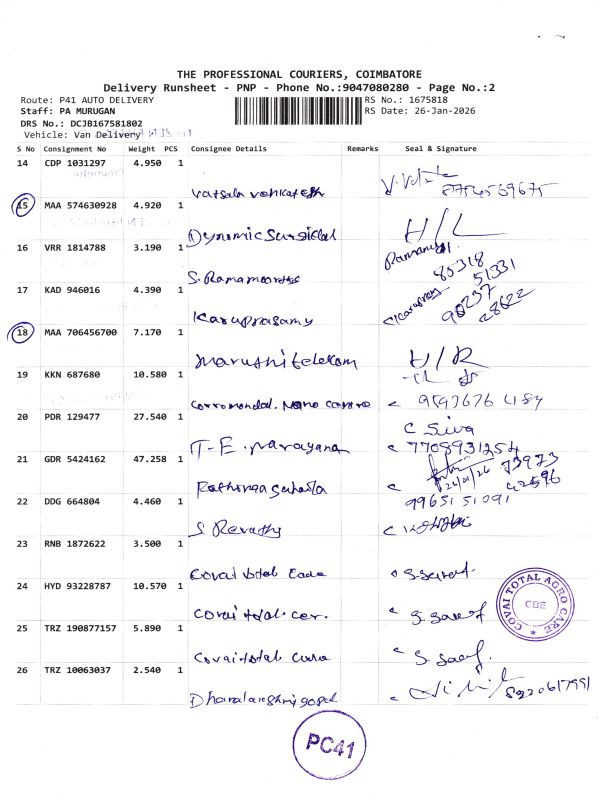 THE PROFESSIONAL COURIERS, COIMBATORE
Delivery Runsheet - PNP - Phone No.:9047080280 - Page No.:2
Route: P41 AUTO DELIVERY
RS No.: 1675818
Staff: PA MURUGAN
RS Date: 26-Jan-2026
DRS No.: DCJB167581802
Vehicle: Van Delivery
S No Consignment No Weight PCS Consignee Details Remarks Seal & Signature
14 CDP 1031297 4.950 1
Vatsala Venkatesh V. 8754569675
15 MAA 574630928 4.920 1
Dynomic Surgical H/L
16 VRR 1814788 3.190 1
S. Ramamoorthy 85318 51331
17 KAD 946016 4.390 1
Karuprasamy 90237 28622
18 MAA 706456700 7.170 1
Maruthi telekom H/R
19 KKN 687680 10.580 1
Corromondal. Nano
20 PDR 129477 27.540 1
C Siva
T. E. Narayana 7708931254
21 GDR 5424162 47.258 1
73973 42596
22 DDG 664804 4.460 1
9965151091
S Revathy
23 RNB 1872622 3.500 1
Covai total Care
24 HYD 93228787 10.570 1
Covai total
COVAI TOTAL AGRO CARE
CBE
25 TRZ 190877157 5.890 1
Covai total
26 TRZ 10063037 2.540 1
PC41